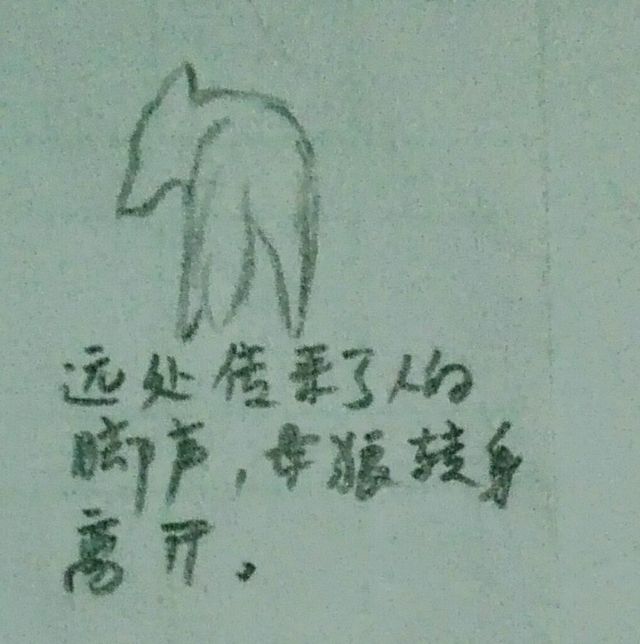 远处传来了人的
脚声，母狼转身
离开。